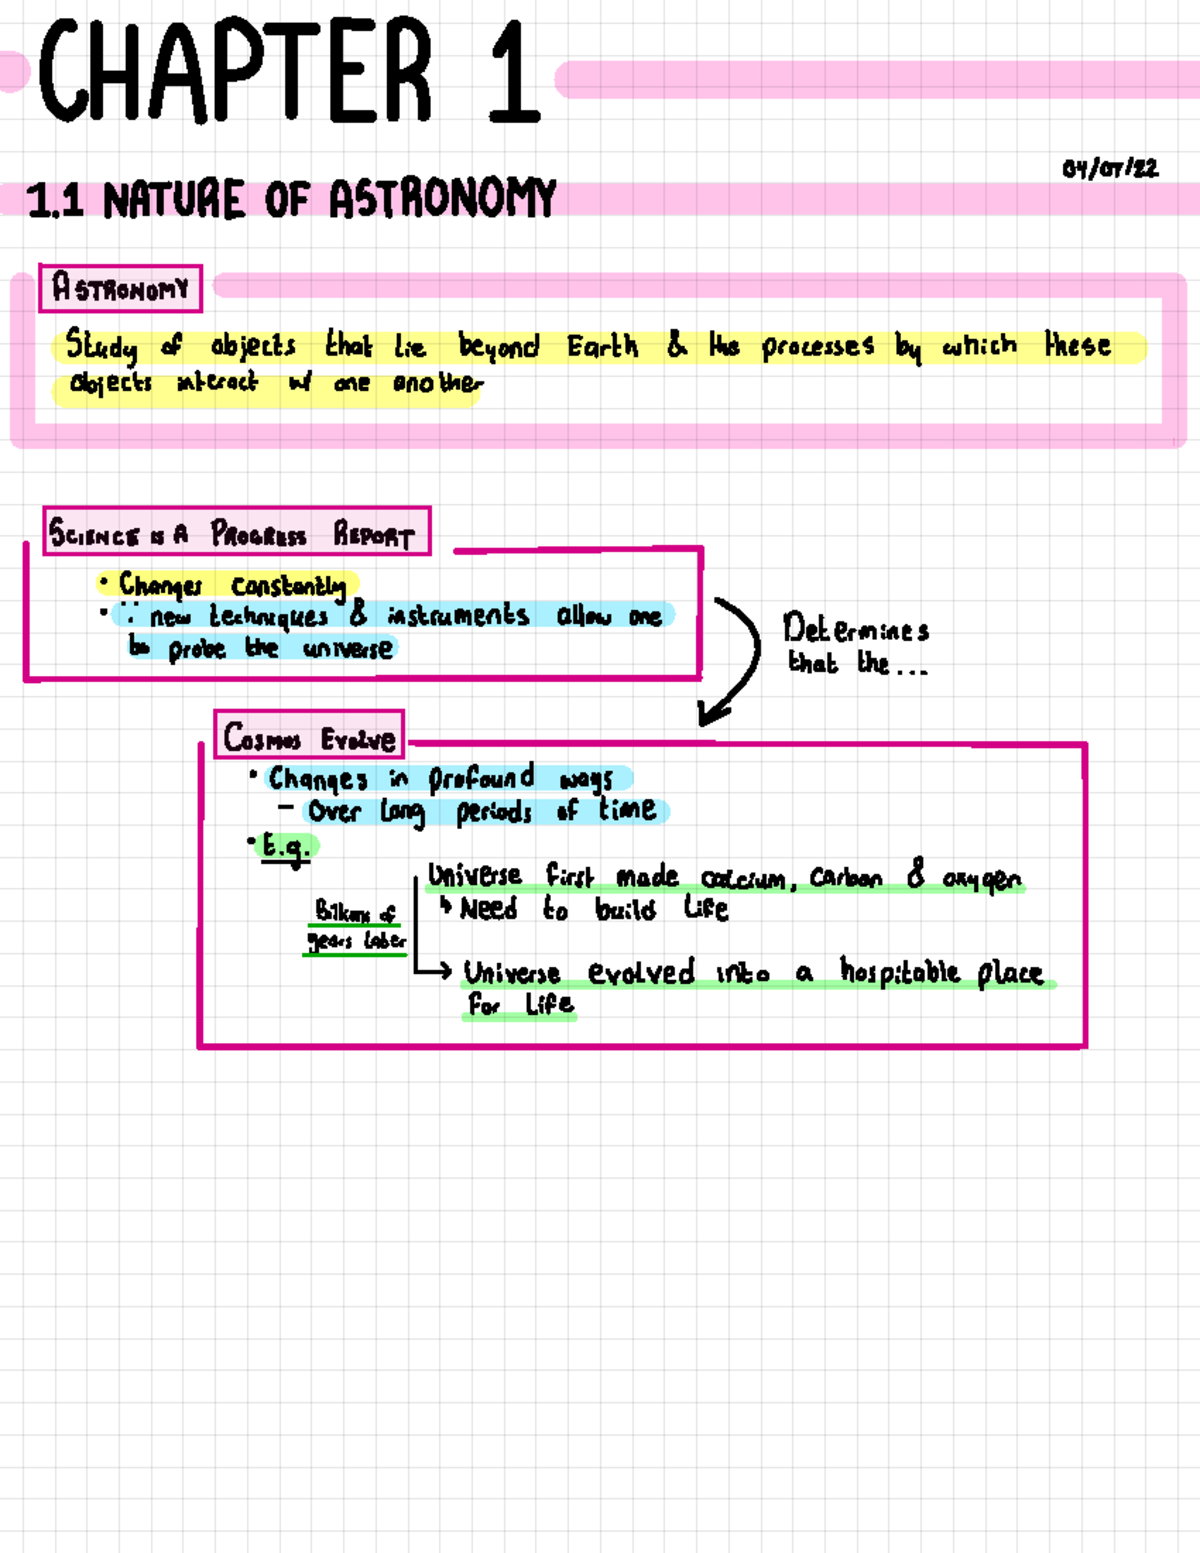 CHAPTER 1
04/07/22
1.1 NATURE OF ASTRONOMY
ASTRONOMY
Study of objects that lie beyond Earth & the processes by which these
objects interact w/ one another
SCIENCE IS A PROGRESS REPORT
• Changes constantly
• ∵ new techniques & instruments allow one
to probe the universe
Determines
that the...
COSMOS EVOLVE
• Changes in profound ways
- Over long periods of time
• E.g.
Universe first made calcium, carbon & oxygen
↳ Need to build life
Billions of
years later
→ Universe evolved into a hospitable place
for life